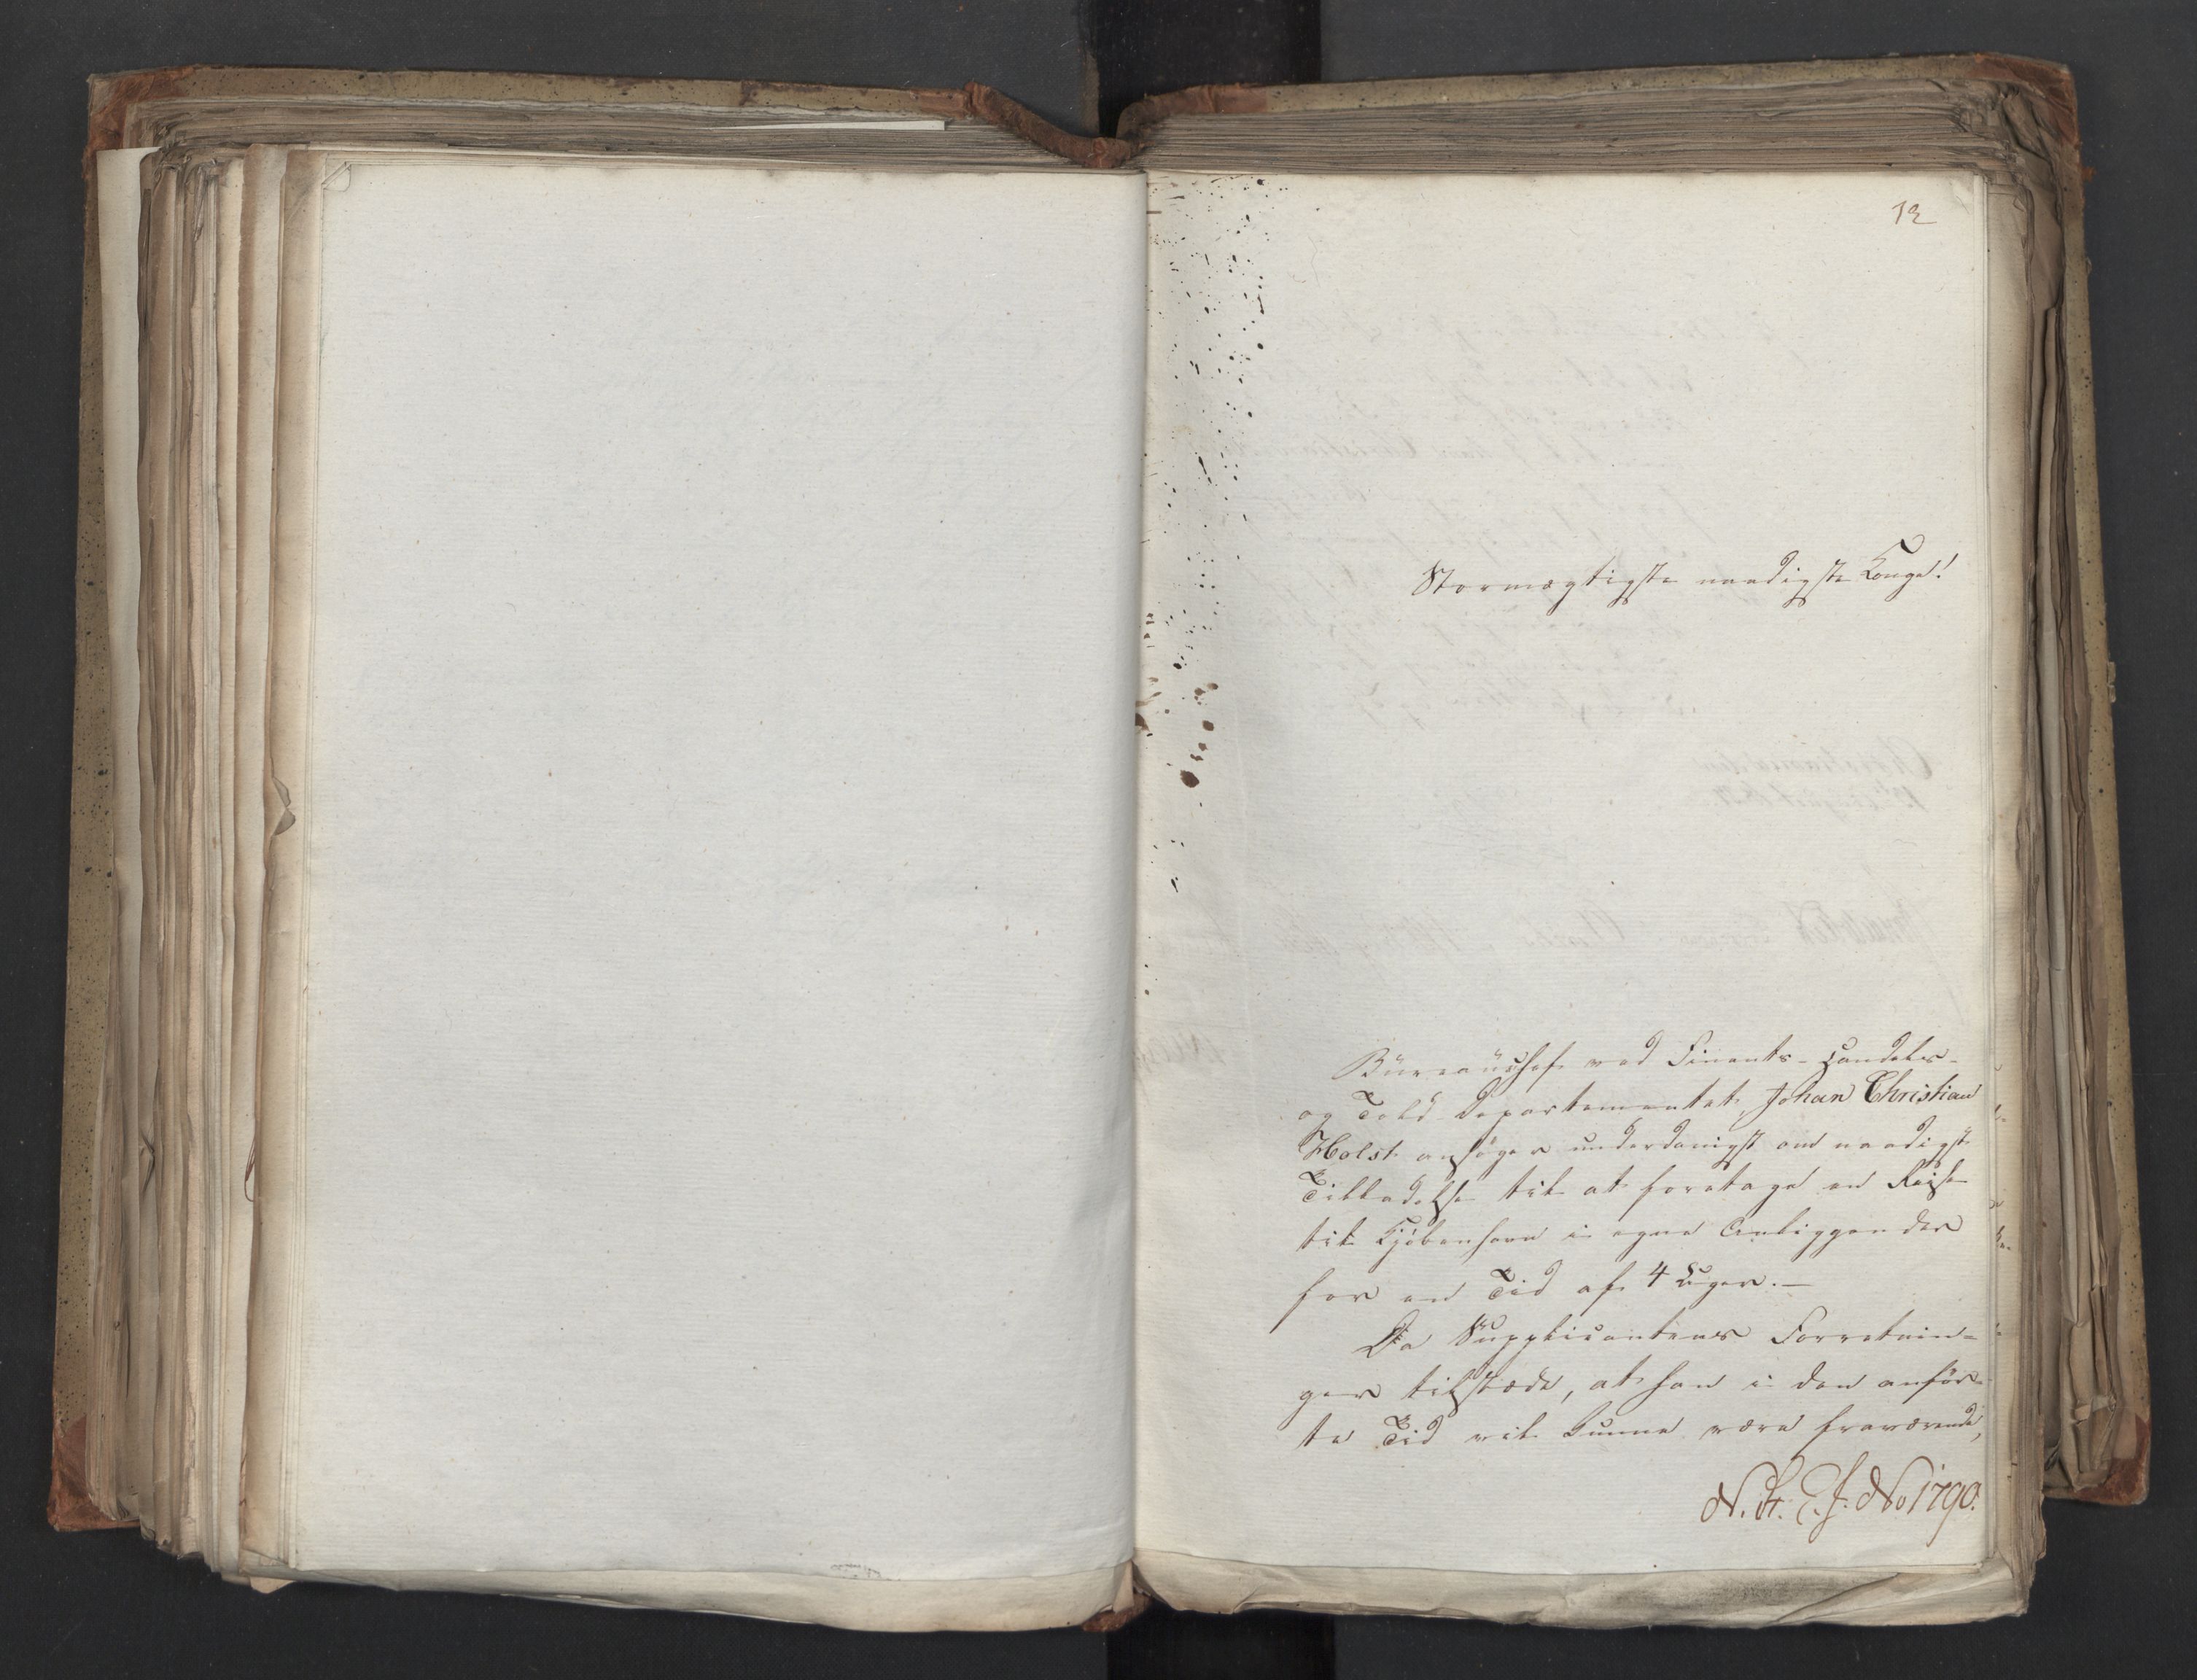 12
Stormægtigste naadigste Konge!
Büreauchef ved Finants- Handels-
og Told-Departementet, Johan Christian
Holst ansøger underdanigst om naadigste
Tilladelse til at foretage en Reise
til Kjøbenhavn i egne Anliggender
for en Tid af 4 Uger.—
Da Supplicantens Forretnin-
ger tilstæde, at han i den anfør-
te Tid vil kunne være fraværende,
No 1790.